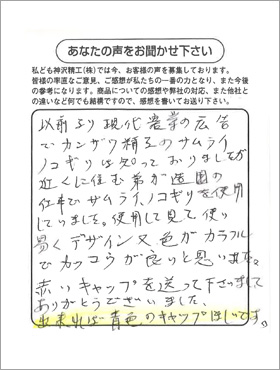 あなたの声をお聞かせ下さい
私ども神沢精工(株)では今、お客様の声を募集しております。
皆様の率直なご意見、ご感想が私たちの一番の力となり、また今後
の参考になります。商品についての感想や弊社の対応、また他社と
の違いなど何でも結構ですので、ご感想を書いてお送り下さい。
以前より現代農業の広告
でカンザワ精工のサムライ
ノコギリは知っておりましたが
近くに住む弟が造園の
仕事でサムライノコギリを使用
していました。使用して見て使い
易くデザイン又色がカラフル
でカッコウが良いと思います。
赤いキャップを送って下さいまして
ありがとうございました、
出来れば青色のキャップほしいです。